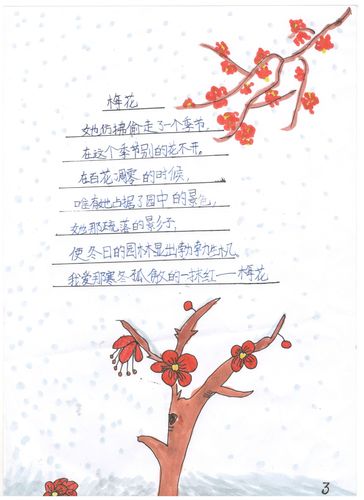 梅花
她仿拂偷走了一个季节,
在这个季节别的花不开。
在百花凋零的时候,
唯有她占据了园中的景色,
她那疏落的影子,
使冬日的园林显出勃勃生机,
我爱那寒冬孤傲的一抹红——梅花
3